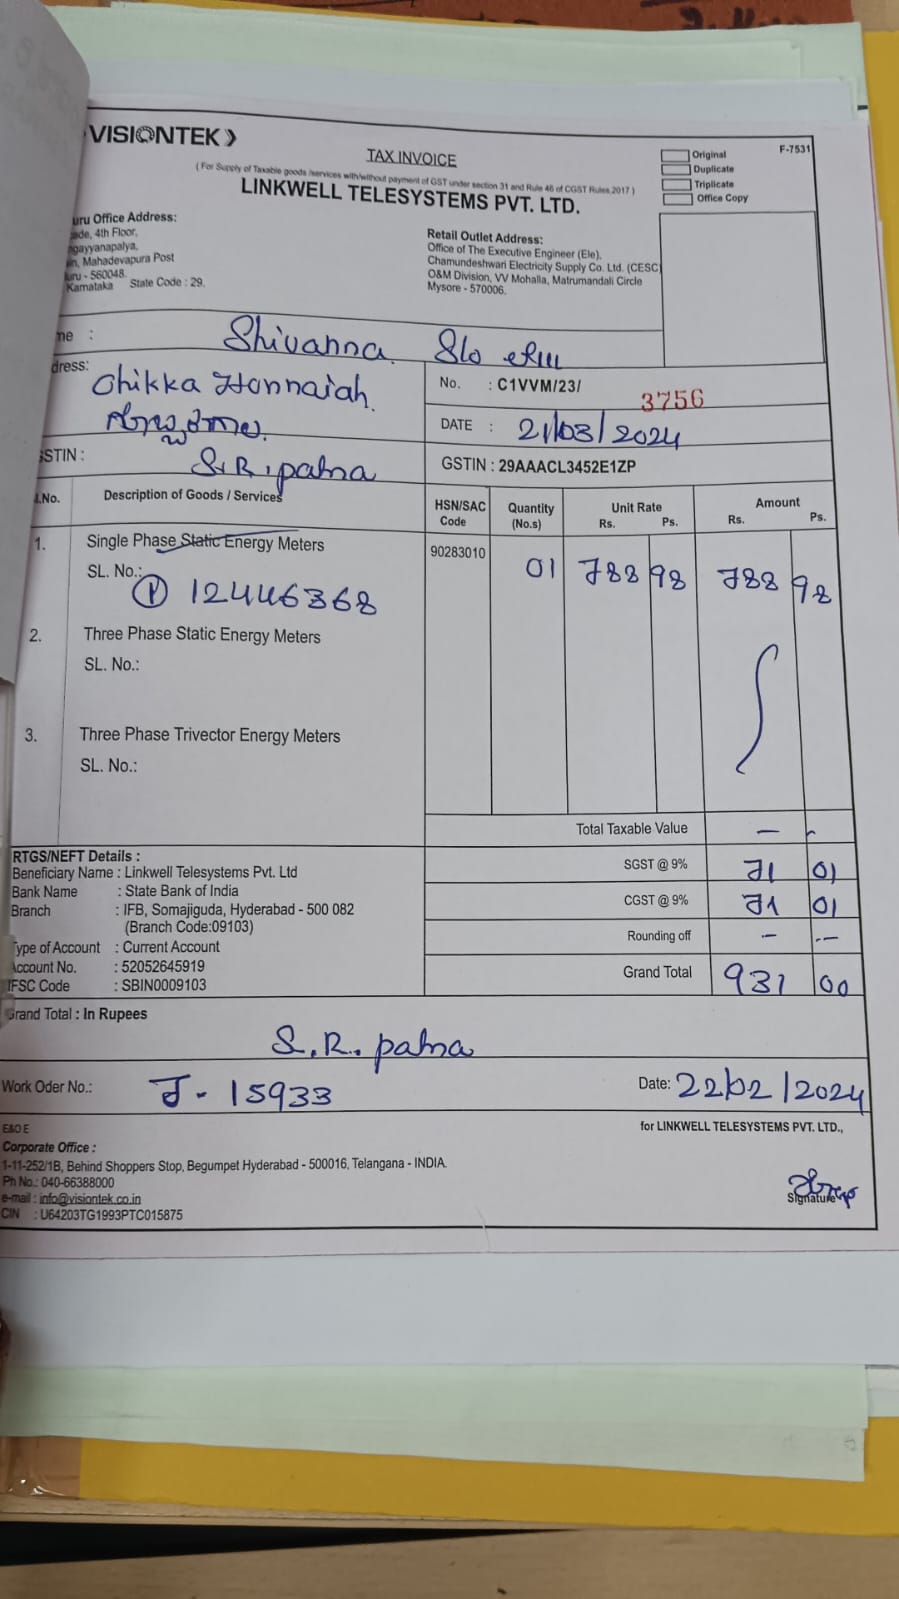 VISIONTEK
TAX INVOICE
( For Supply of Taxable goods /services with/without payment of GST under section 31 and Rule 46 of CGST Rules,2017 )
LINKWELL TELESYSTEMS PVT. LTD.
Original
Duplicate
Triplicate
Office Copy
F-7531
uru Office Address:
ade, 4th Floor,
ngayyanapalya,
in, Mahadevapura Post
luru - 560048.
Karnataka State Code : 29.
Retail Outlet Address:
Office of The Executive Engineer (Ele).
Chamundeshwari Electricity Supply Co. Ltd. (CESC
O&M Division, VV Mohalla, Matrumandali Circle
Mysore - 570006.
me : Shivanna S/o
dress: Chikka Honnaiah
No. : C1VVM/23/ 3756
DATE : 21/03/2024
STIN : S.R. patna
GSTIN : 29AAACL3452E1ZP
.No. Description of Goods / Services HSN/SAC Code Quantity (No.s) Unit Rate Rs. Ps. Amount Rs. Ps.
1. Single Phase Static Energy Meters 90283010 01 788 98 788 98
SL. No.: P 12446368
2. Three Phase Static Energy Meters
SL. No.:
3. Three Phase Trivector Energy Meters
SL. No.:
Total Taxable Value — -
RTGS/NEFT Details :
Beneficiary Name : Linkwell Telesystems Pvt. Ltd
Bank Name : State Bank of India
Branch : IFB, Somajiguda, Hyderabad - 500 082
(Branch Code:09103)
Type of Account : Current Account
Account No. : 52052645919
IFSC Code : SBIN0009103
SGST @ 9% 71 01
CGST @ 9% 71 01
Rounding off — --
Grand Total 931 00
Grand Total : In Rupees
S.R. patna
Work Oder No.: J - 15933 Date: 22/02/2024
E&O E
for LINKWELL TELESYSTEMS PVT. LTD.,
Corporate Office :
1-11-252/1B, Behind Shoppers Stop, Begumpet Hyderabad - 500016, Telangana - INDIA.
Ph No.: 040-66388000
e-mail : info@visiontek.co.in
CIN : U64203TG1993PTC015875
Signature